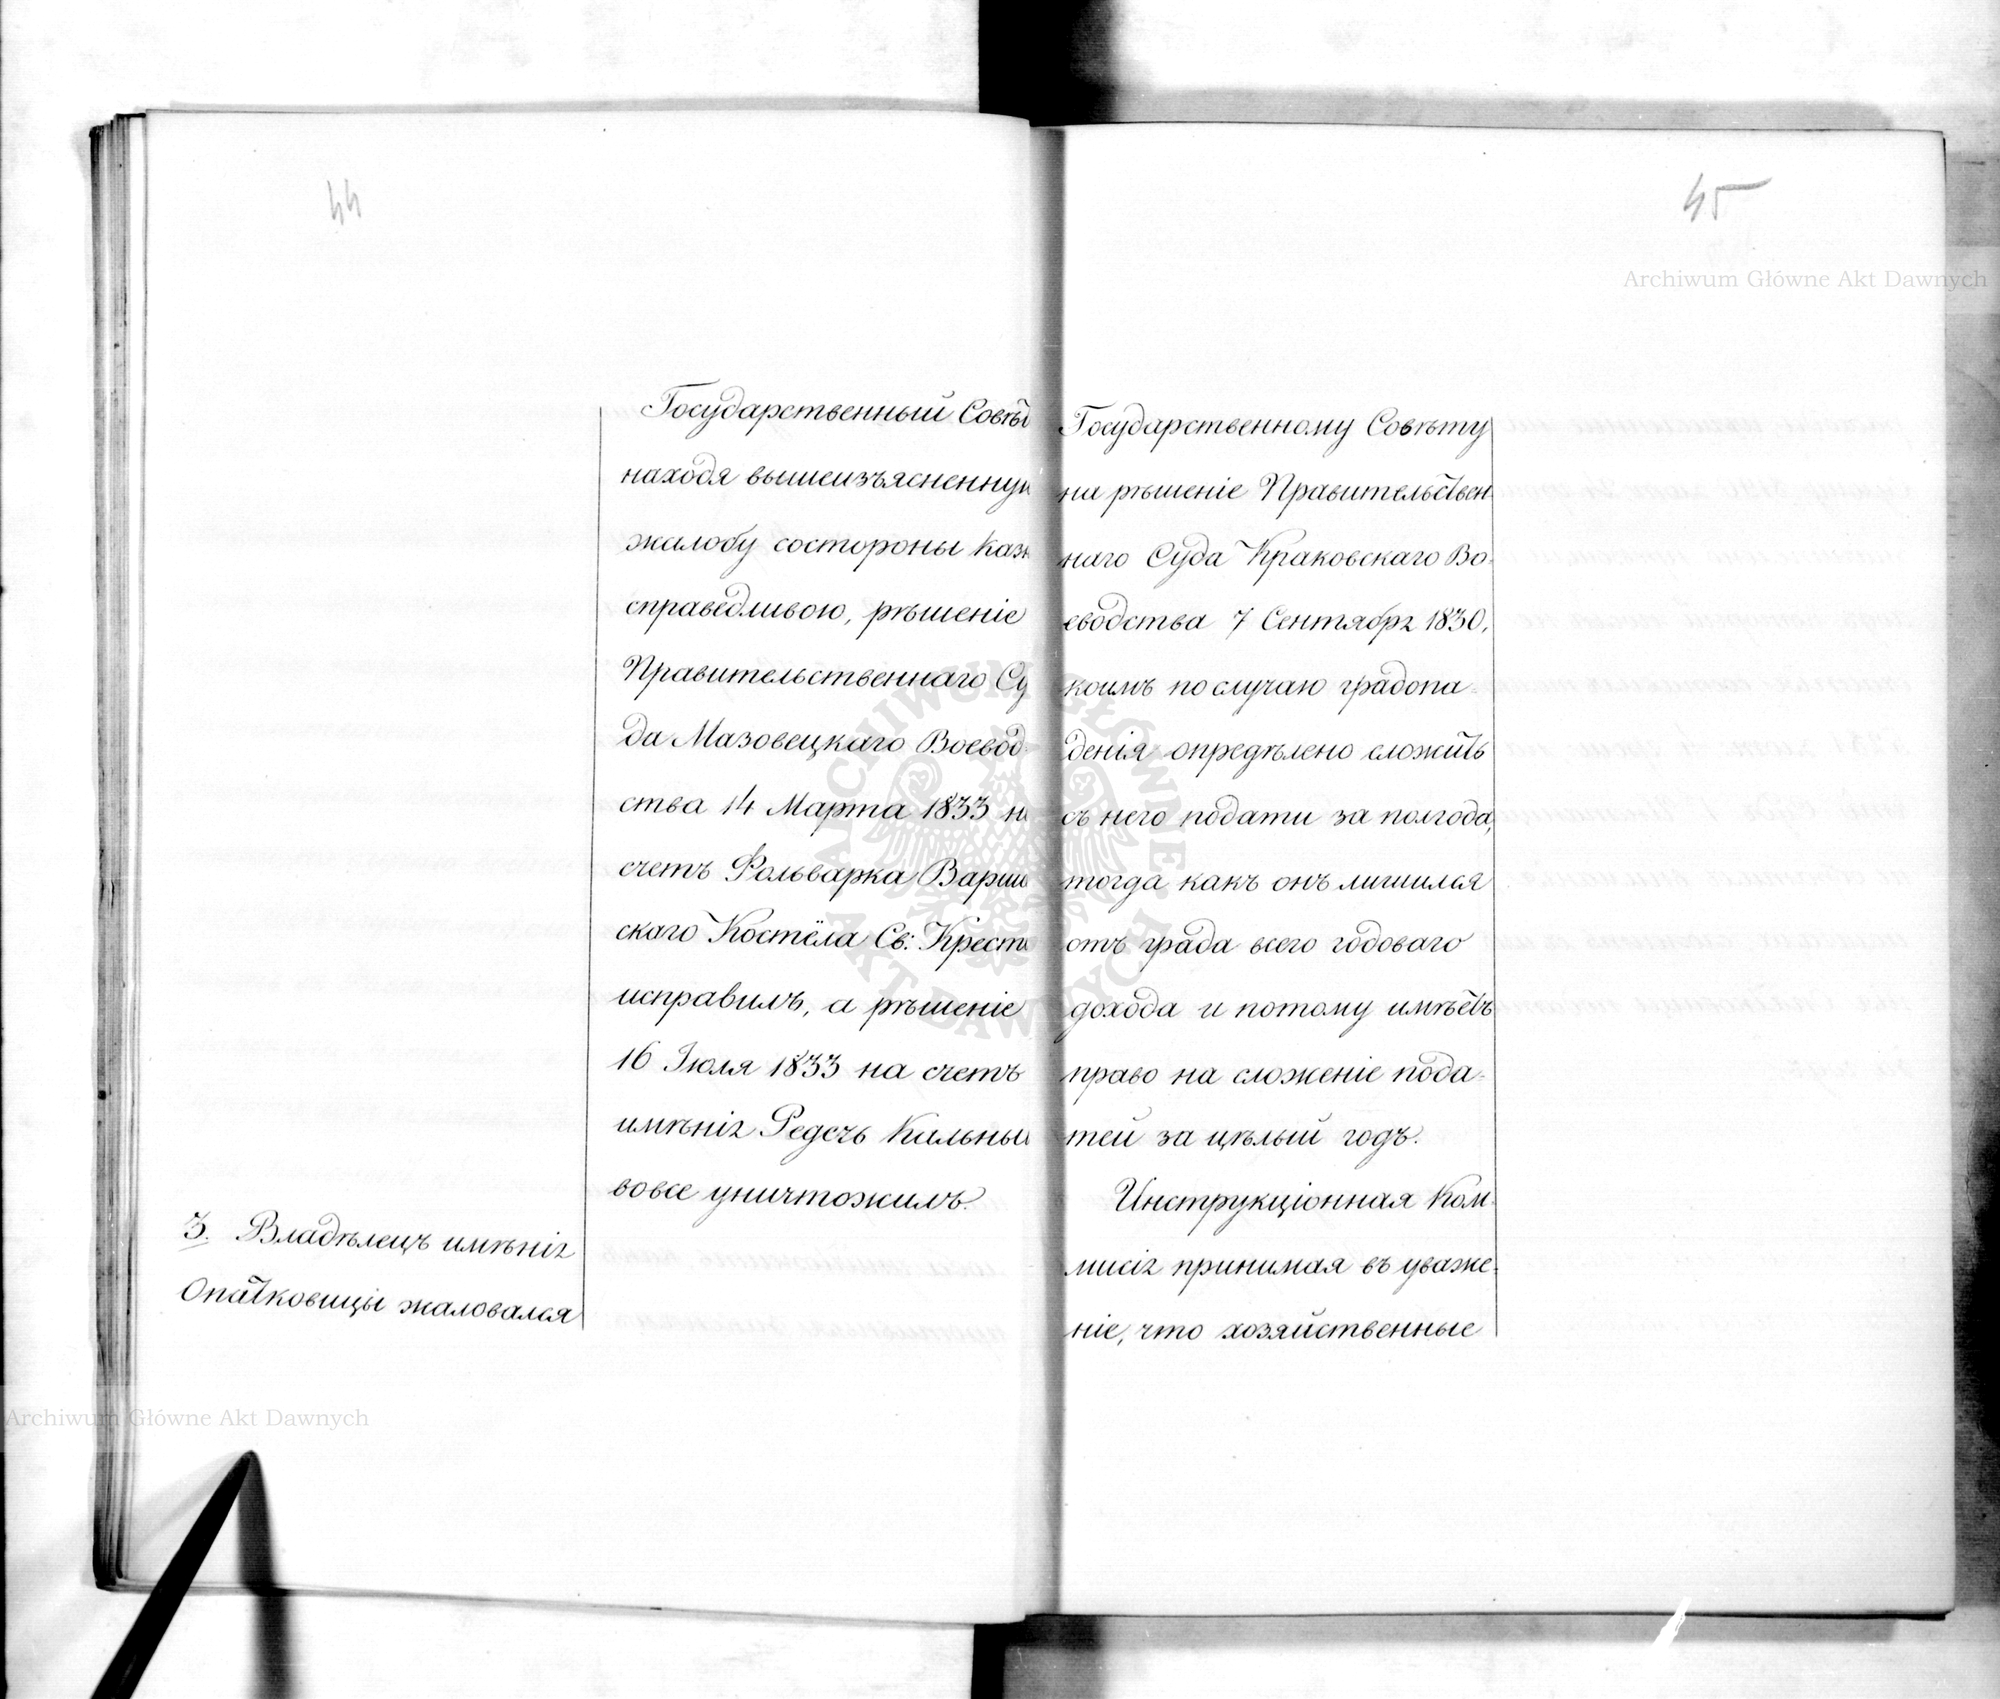 44
Государственный Совѣт
находя вышеизъясненную
жалобу состороны Казн
справедливою, рѣшеніе
Правительственнаго Су
да Мазовецкаго Воевод-
ства 14 Марта 1833 на
счетъ Фольварка Варша
скаго Костёла Св: Креста
исправилъ, а рѣшеніе
16 Іюля 1833 на счетъ
имѣнія Редечь Кальны
вовсе уничтожилъ.
3. Владѣлецъ имѣнія
Опатковицы жаловался
45
Государственному Совѣту
на рѣшеніе Правительствен-
наго Суда Краковскаго Во-
еводства 7 Сентября 1830,
коимъ по случаю градопа-
денія опредѣлено сложить
съ него подати за полгода,
тогда какъ онъ лишился
отъ града всего годоваго
дохода и потому имѣетъ
право на сложеніе пода-
тей за цѣлый годъ.
Инструкціонная Ком-
мисія принимая въ уваже-
ніе, что хозяйственные
Archiwum Główne Akt Dawnych
ARCHIWUM GŁÓWNE AKT DAWNYCH
Archiwum Główne Akt Dawnych